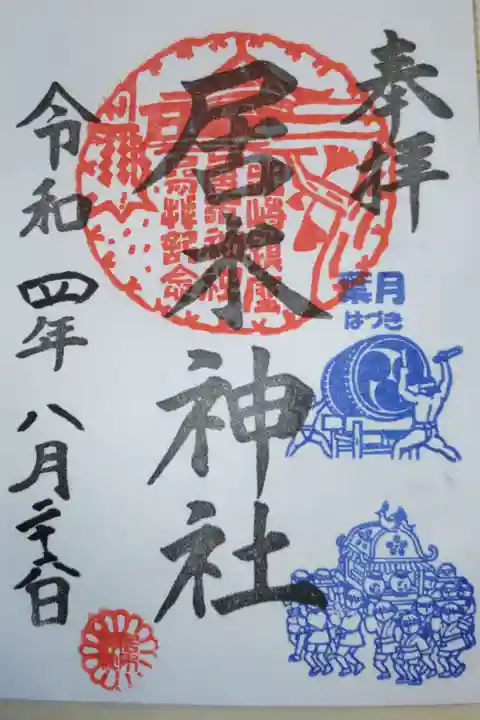 奉拝
葉月
はづき
居木神社
令和四年八月二十八日